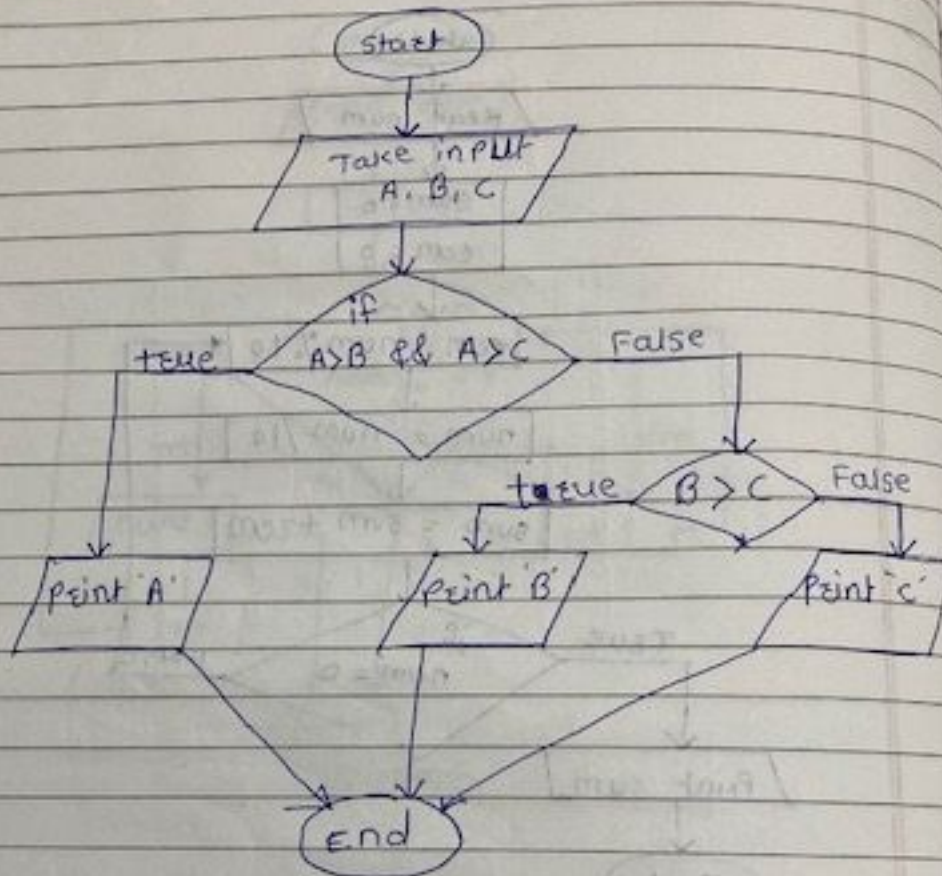 Start
Take input
A, B, C
if
A>B && A>C
true
False
B > C
true
False
print 'A'
print 'B'
print 'C'
End